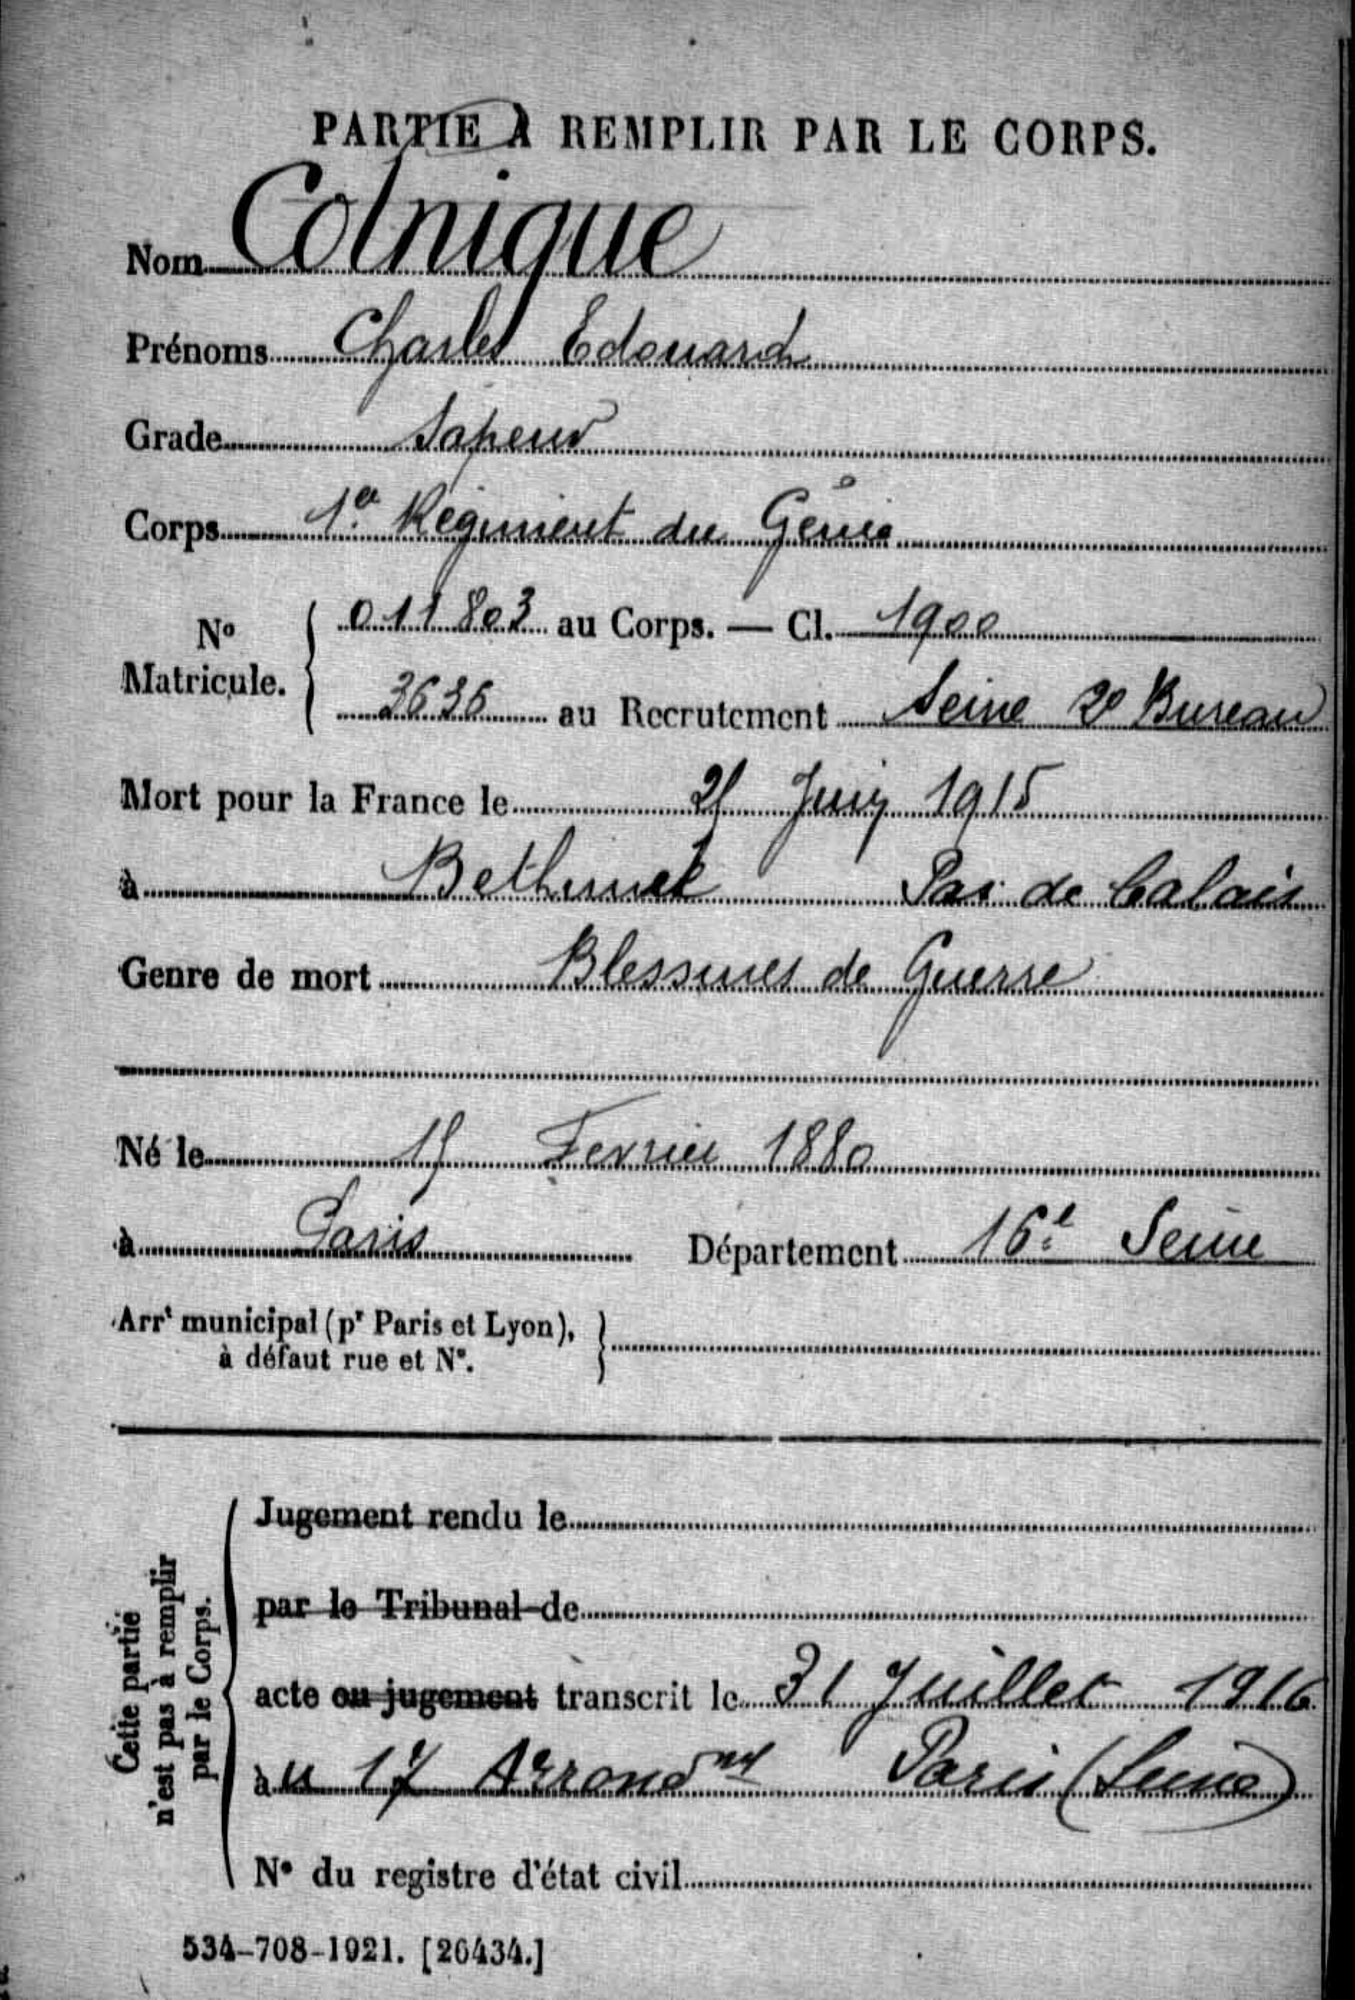 PARTIE À REMPLIR PAR LE CORPS.
Nom Colnique
Prénoms Charles Edouard
Grade Sapeur
Corps 1er Régiment du Génie
No Matricule. { 011803 au Corps. — Cl. 1900
3636 au Recrutement Seine 2e Bureau
Mort pour la France le Juin 1915
à Pas de Calais
Genre de mort Blessures de Guerre
Né le 15 Fevrier 1880
à Paris Département 16e Seine
Arrt municipal (pr Paris et Lyon), à défaut rue et No. }
Cette partie n'est pas à remplir par le Corps.
Jugement rendu le
par le Tribunal de
acte ou jugement transcrit le 31 Juillet 1916
àu 17 Arrondmt Paris (Seine)
No du registre d'état civil
534-708-1921. [26434.]